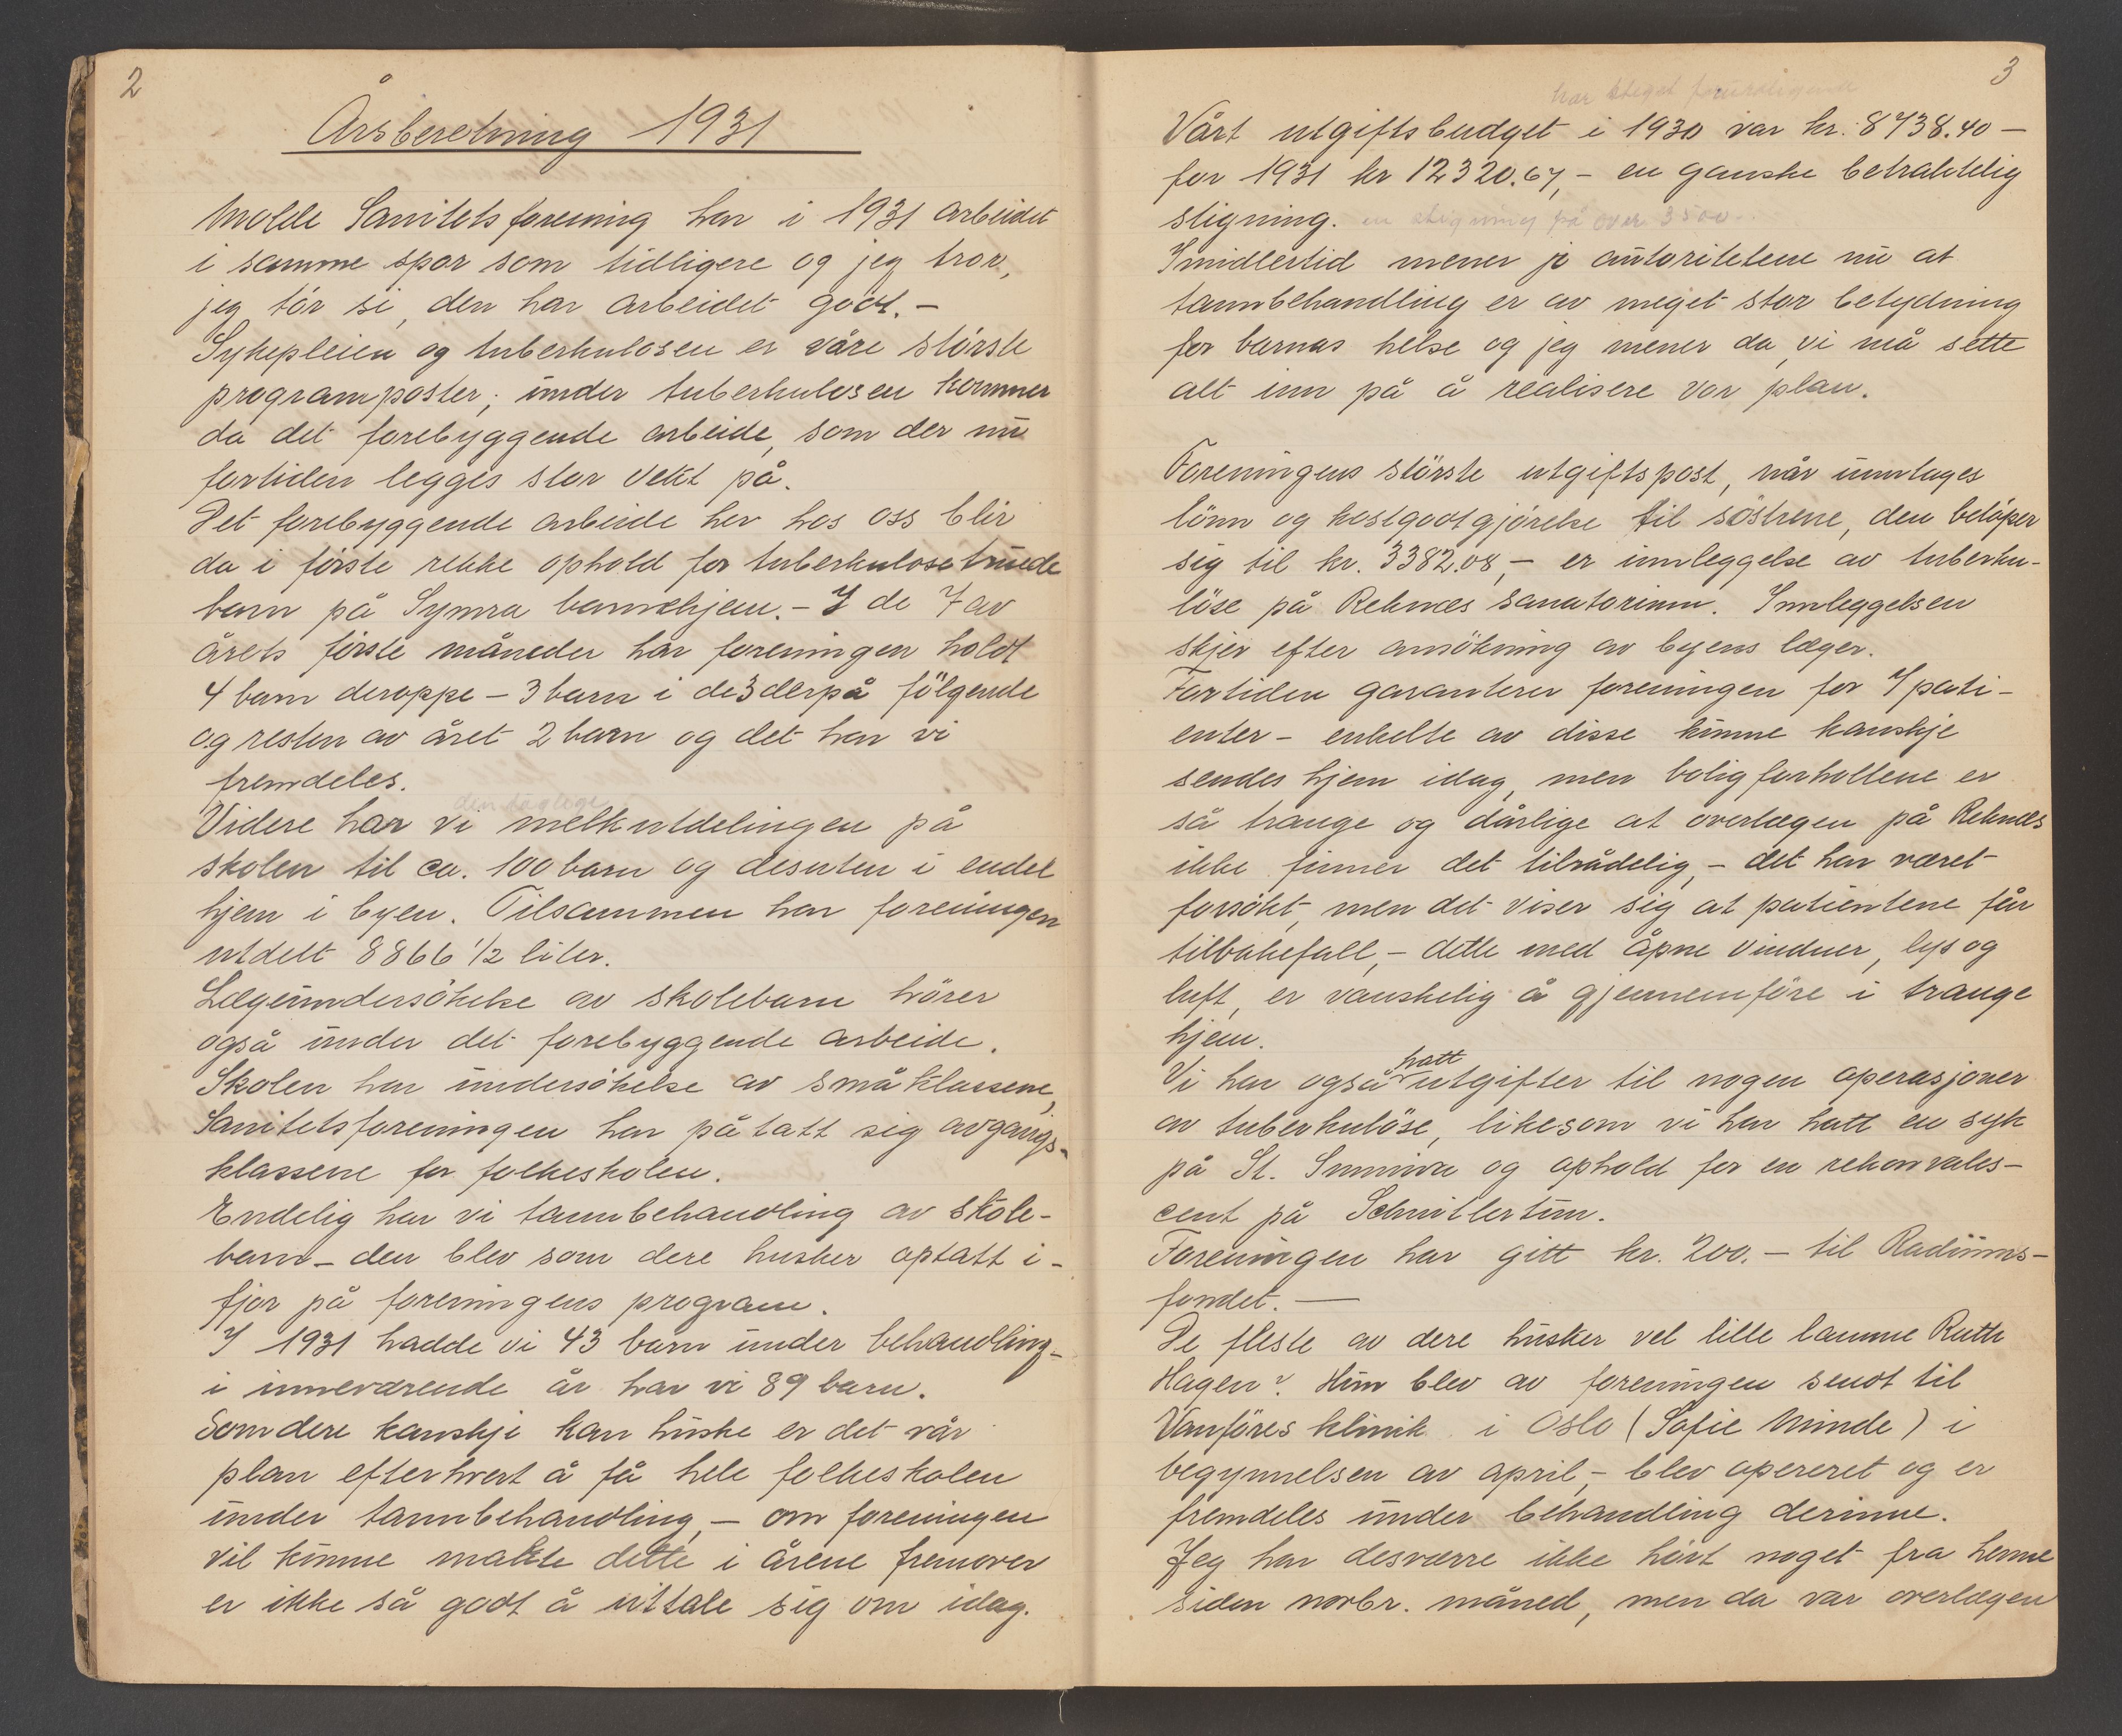 2
Årsberetning 1931
Molde Sanitetsforening har i 1931 arbeidet
i samme spor som tidligere og jeg tror,
jeg tör si, den har arbeidet godt. –
Sykepleien og tuberkulosen er våre störste
programposter; under tuberkulosen kommer
da det forebyggende arbeide, som der nu
fortiden legges stor vekt på.
Det forebyggende arbeide her hos oss blir
da i förste rekke ophold for tuberkulosetruede
barn på Symra barnehjem. – I de 7 av
årets förste måneder har foreningen holdt
4 barn deroppe – 3 barn i de 3 derpå fölgende
og resten av året 2 barn og det har vi
fremdeles.
den daglige
Videre har vi melkutdelingen på
skolen til ca. 100 barn og desuten i endel
hjem i byen. Tilsammen har foreningen
utdelt 8866 1/2 liter.
Lægeundersökelse av skolebarn hörer
også under det forebyggende arbeide.
Skolen har undersökelse av småklassene,
Sanitetsforeningen har påtatt sig avgangs-
klassene for folkeskolen.
Endelig har vi tannbehandling av skole-
barn – den blev som dere husker optatt i-
fjor på foreningens program.
I 1931 hadde vi 43 barn under behandling –
i inneværende år har vi 89 barn.
Som dere kanskje kan huske er det vår
plan efterhvert å få hele folkeskolen
under tannbehandling, – om foreningen
vil kunne makte dette i årene fremover
er ikke så godt å uttale sig om idag.
3
har steget foruroligende
Vårt utgiftsbudget i 1930 var kr. 8738.40 –
for 1931 kr 12320.67, – en ganske betraktelig
stigning. en stigning på over 3500..
Imidlertid mener jo autoritetene nu at
tannbehandling er av meget stor betydning
for barnas helse og jeg mener da, vi må sette
alt inn på å realisere vor plan.
Foreningens störste utgiftspost, når unntages
lönn og kostgodtgjörelse til söstrene, den belöper
sig til kr. 3382.08, – er innleggelse av tuberku-
löse på Reknes sanatorium. Innleggelsen
skjer efter ansökning av byens læger.
Fortiden garanterer foreningen for 7 pati-
enter – enkelte av disse kunne kanskje
sendes hjem idag, men boligforholdene er
så trange og dårlige at overlægen på Reknes
ikke finner det tilrådelig, – det har været
forsökt, men det viser sig at patientene får
tilbakefall, – dette med åpne vinduer, lys og
luft, er vanskelig å gjennemföre i trange
hjem.
Vi har også hatt utgifter til nogen operasjoner
av tuberkulöse, likesom vi har hatt en syk
på St. Sunniva og ophold for en rekonvales-
cent på Schnitlertun.
Foreningen har gitt kr. 200. – til Radiums-
fondet. —
De fleste av dere husker vel lille lamme Ruth
Hagen? Hun blev av foreningen sendt til
Vanföres klinik i Oslo (Sofie Minde) i
begynnelsen av april, – blev operert og er
fremdeles under behandling derinne.
Jeg har desværre ikke hört noget fra henne
siden novbr. måned, men da var overlægen